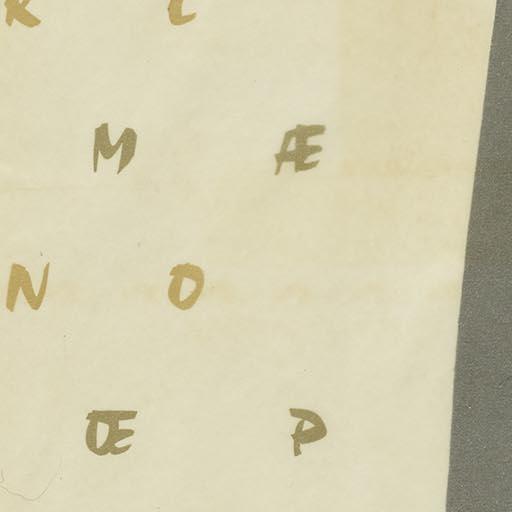 K L
M Æ
N O
Œ P